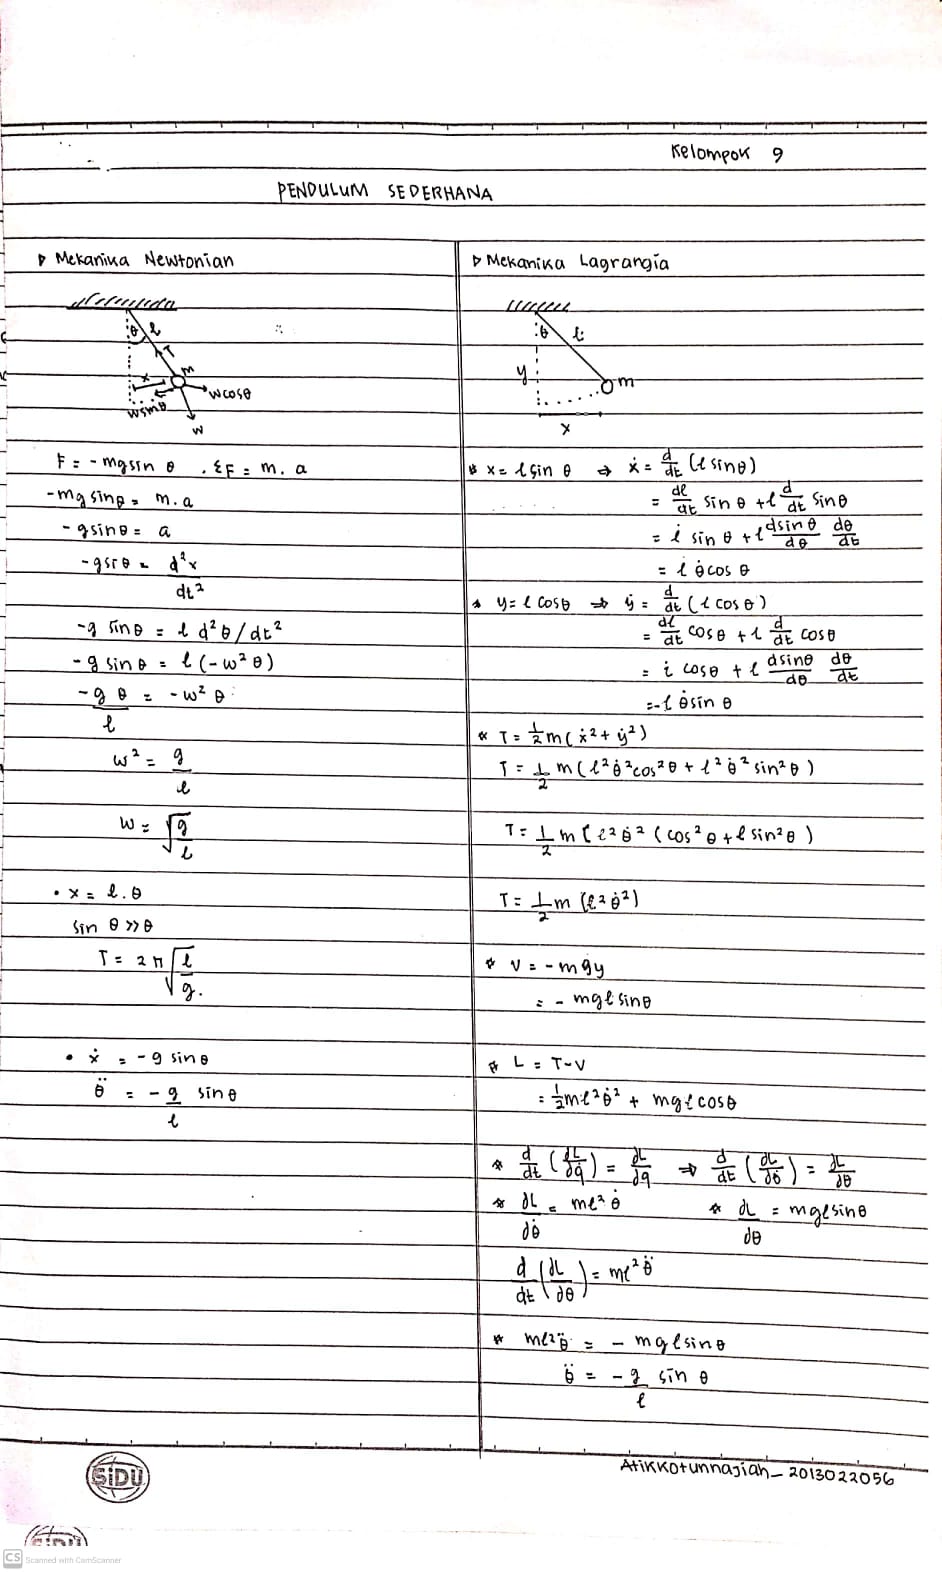 Kelompok 9
PENDULUM SEDERHANA
▷ Mekanika Newtonian
θ l
T
m
x
w sinθ
w cosθ
w
F = - mg sin θ , ΣF = m. a
- mg sin θ = m. a
- g sin θ = a
- g sin θ = d²x
dt²
- g sin θ = l d²θ/dt²
- g sin θ = l (-w² θ)
- g θ = - w² θ
l
w² = g
l
w = √g
l
• x = l. θ
sin θ >> θ
T = 2π √l
g.
• ẋ = - g sin θ
θ̈ = - g sin θ
l
▷ Mekanika Lagrangia
θ l
y
m
x
* x = l sin θ ⇒ ẋ = d/dt (l sin θ)
= dl/dt sin θ + l d/dt sin θ
= l̇ sin θ + l dsin θ/dθ dθ/dt
= l θ̇ cos θ
* y = l cos θ ⇒ ẏ = d/dt (l cos θ)
= dl/dt cos θ + l d/dt cos θ
= l̇ cos θ + l dsin θ/dθ dθ/dt
= - l θ̇ sin θ
* T = 1/2 m (ẋ² + ẏ²)
T = 1/2 m (l² θ̇² cos² θ + l² θ̇² sin² θ)
T = 1/2 m [l² θ̇² (cos² θ + l sin² θ)
T = 1/2 m (l² θ̇²)
* V = - mgy
= - mgl sin θ
* L = T - V
= 1/2 ml² θ̇² + mgl cos θ
* d/dt (∂L/∂q̇) = ∂L/∂q ⇒ d/dt (∂L/∂θ̇) = ∂L/∂θ
* ∂L/∂θ̇ = ml² θ̇ * ∂L/∂θ = mgl sin θ
d/dt (∂L/∂θ) = ml² θ̈
* ml² θ̈ = - mgl sin θ
θ̈ = - g sin θ
l
Atikkotunnajiah_2013022056
SiDU
SiDU
CS Scanned with CamScanner